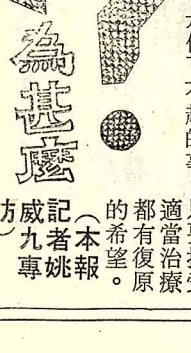 ？
為甚麼
適當治療
都有復原
的希望。
（本報
記者姚
威九專
訪）